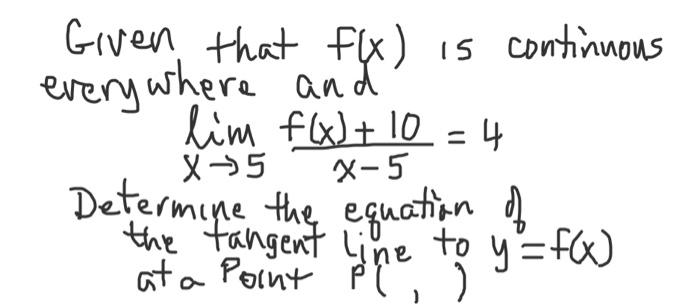 Given that f(x) is continuous
everywhere and
lim x→5 (f(x) + 10)/(x-5) = 4
Determine the equation of
the tangent line to y = f(x)
at a Point P( , )